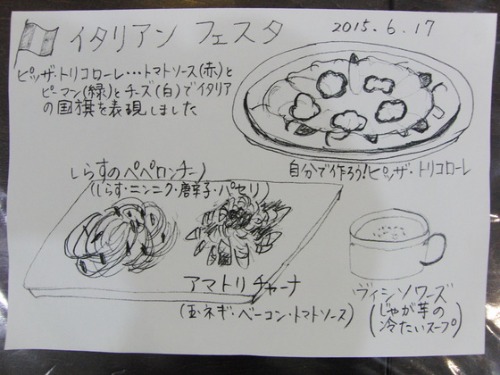 イタリアン フェスタ
2015.6.17
ピッザ・トリコローレ・・・トマトソース(赤)と
ピーマン(緑)とチーズ(白)でイタリア
の国旗を表現しました
自分で作ろう!ピッザ・トリコローレ
しらすのペペロンチーノ
(しらす・ニンニク・唐辛子・パセリ)
アマトリチャーナ
(玉ネギ・ベーコン・トマトソース)
ヴィシソワーズ
(じゃが芋の
冷たいスープ)